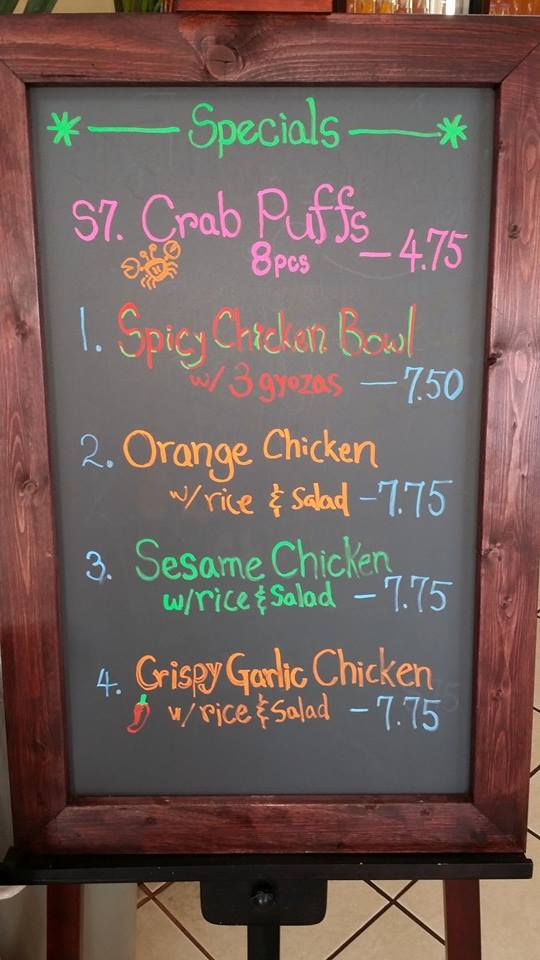 Specials
S7. Crab Puffs
8pcs — 4.75
1. Spicy Chicken Bowl
w/ 3 gyozas — 7.50
2. Orange Chicken
w/ rice & Salad - 7.75
3. Sesame Chicken
w/rice & Salad - 7.75
4. Crispy Garlic Chicken
w/ rice & Salad - 7.75